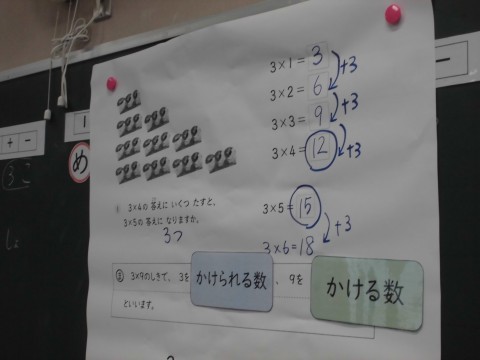 3×1=3
+3
3×2=6
+3
3×3=9
+3
3×4=12
め
3×4の 答えに いくつ たすと、
3×5の 答えに なりますか。
3つ
3×5=15
+3
3×6=18
③ 3×9のしきで、 3を かけられる数 、 9を かける数
といいます。